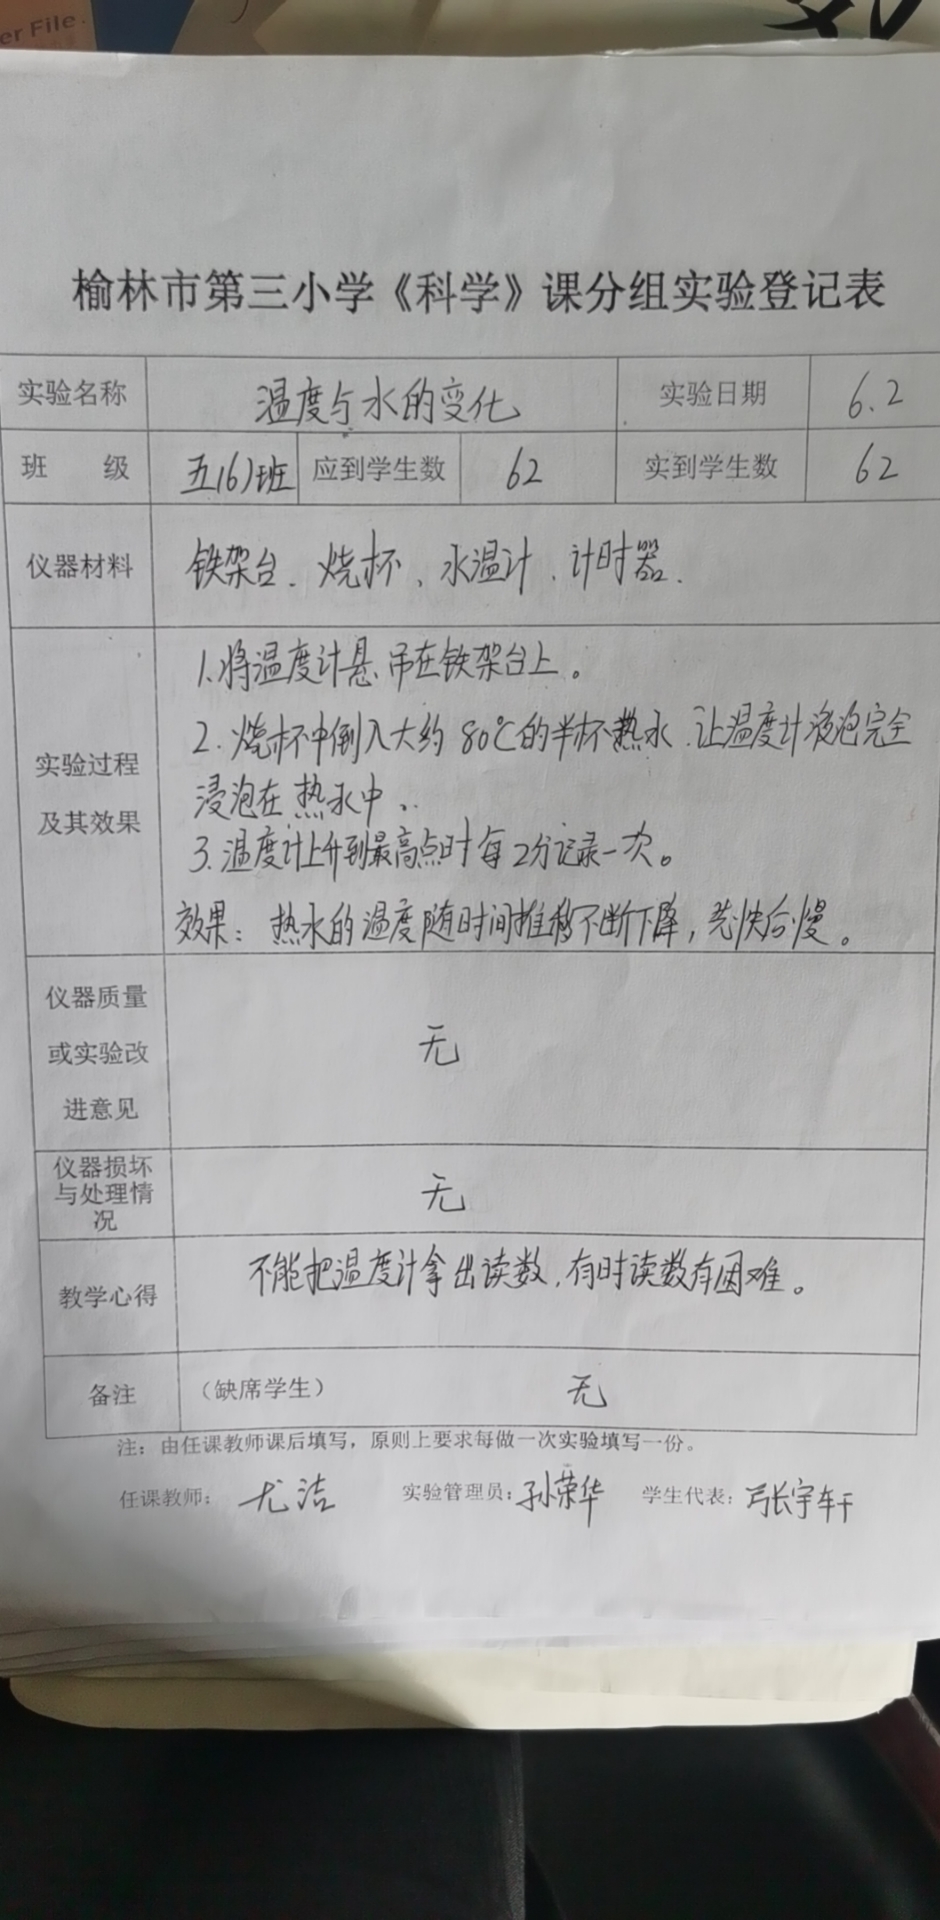 er File.
榆林市第三小学《科学》课分组实验登记表
实验名称 温度与水的变化 实验日期 6.2
班 级 五(6)班 应到学生数 62 实到学生数 62
仪器材料 铁架台、烧杯、水温计、计时器.
1.将温度计悬吊在铁架台上。
2.烧杯中倒入大约80℃的半杯热水.让温度计液泡完全
实验过程
浸泡在热水中..
及其效果
3.温度计上升到最高点时每2分记录一次。
效果:热水的温度随时间推移不断下降,先快后慢。
仪器质量
或实验改 无
进意见
仪器损坏
与处理情 无
况
教学心得 不能把温度计拿出读数,有时读数有困难。
备注 (缺席学生) 无
注:由任课教师课后填写,原则上要求每做一次实验填写一份。
任课教师: 尤洁 实验管理员:孙荣华 学生代表:张宇轩